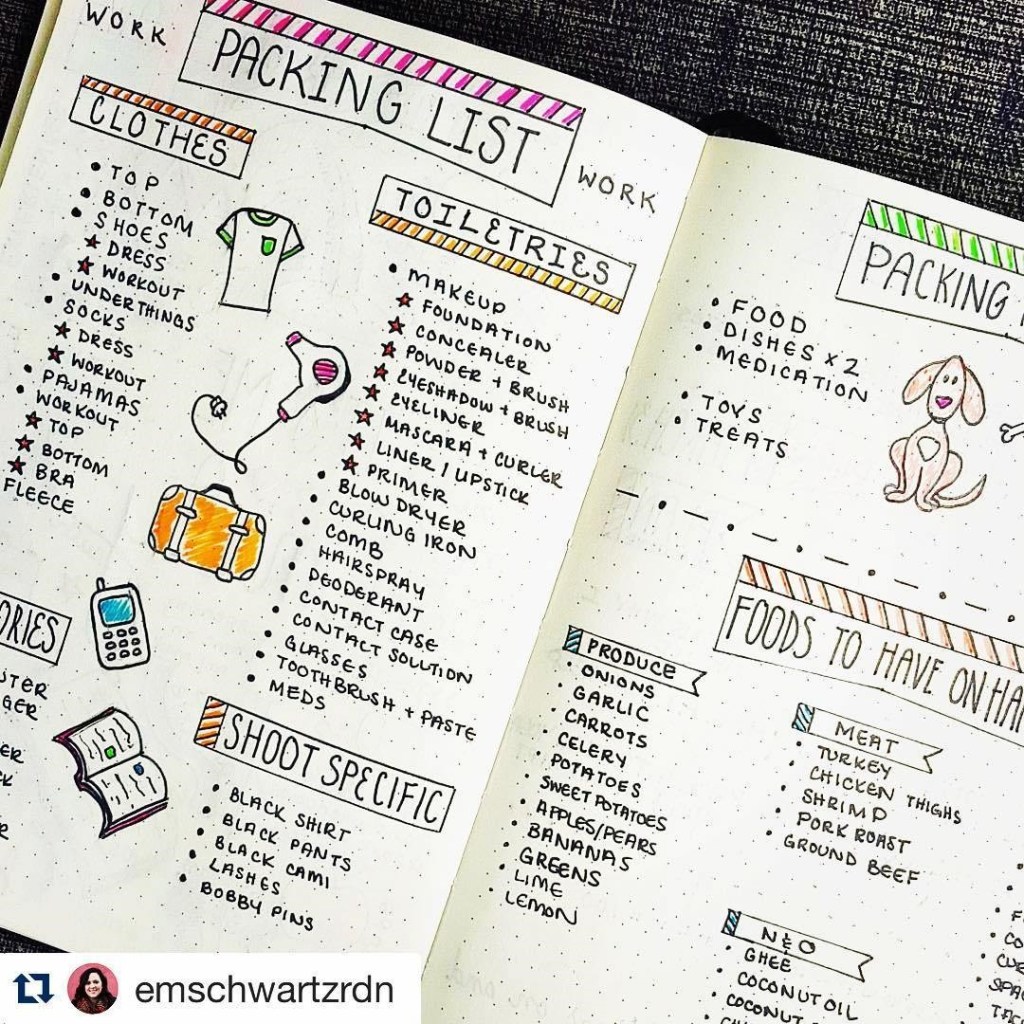 WORK
PACKING LIST
WORK
CLOTHES
TOP
BOTTOM
SHOES
DRESS
WORKOUT
UNDERTHINGS
SOCKS
DRESS
WORKOUT
PAJAMAS
WORKOUT
TOP
BOTTOM
BRA
FLEECE
TOILETRIES
MAKEUP
FOUNDATION
CONCEALER
POWDER + BRUSH
EYESHADOW + BRUSH
EYELINER
MASCARA + CURLER
LINER / LIPSTICK
PRIMER
BLOW DRYER
CURLING IRON
COMB
HAIRSPRAY
DEODERANT
CONTACT CASE
CONTACT SOLUTION
GLASSES
TOOTHBRUSH + PASTE
MEDS
ORIES
UTER
GER
ER
CK
ER
SHOOT SPECIFIC
BLACK SHIRT
BLACK PANTS
BLACK CAMI
LASHES
BOBBY PINS
PACKING
FOOD
DISHES x 2
MEDICATION
TOYS
TREATS
FOODS TO HAVE ON HA
PRODUCE
ONIONS
GARLIC
CARROTS
CELERY
POTATOES
SWEET POTATOES
APPLES/PEARS
BANANAS
GREENS
LIME
LEMON
MEAT
TURKEY
CHICKEN THIGHS
SHRIMP
PORK ROAST
GROUND BEEF
N & O
GHEE
COCONUT OIL
COCONUT
F
CO
CU
SPA
TAC
emschwartzrdn